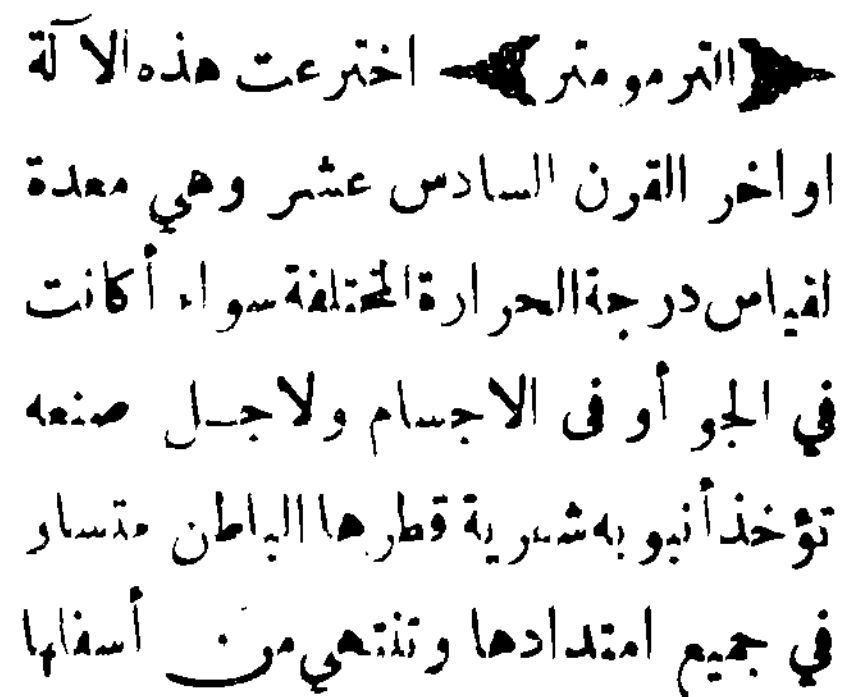 ﴿الترمومتر﴾ اخترعت هذه الآلة
اواخر القرن السادس عشر وهي معدة
لقياس درجة الحرارة المختلفة سواء أكانت
في الجو أو فى الاجسام ولاجل صنعه
تؤخذ أنبوبه شعرية قطرها الباطن متساو
في جميع امتدادها وتنتهي من أسفلها